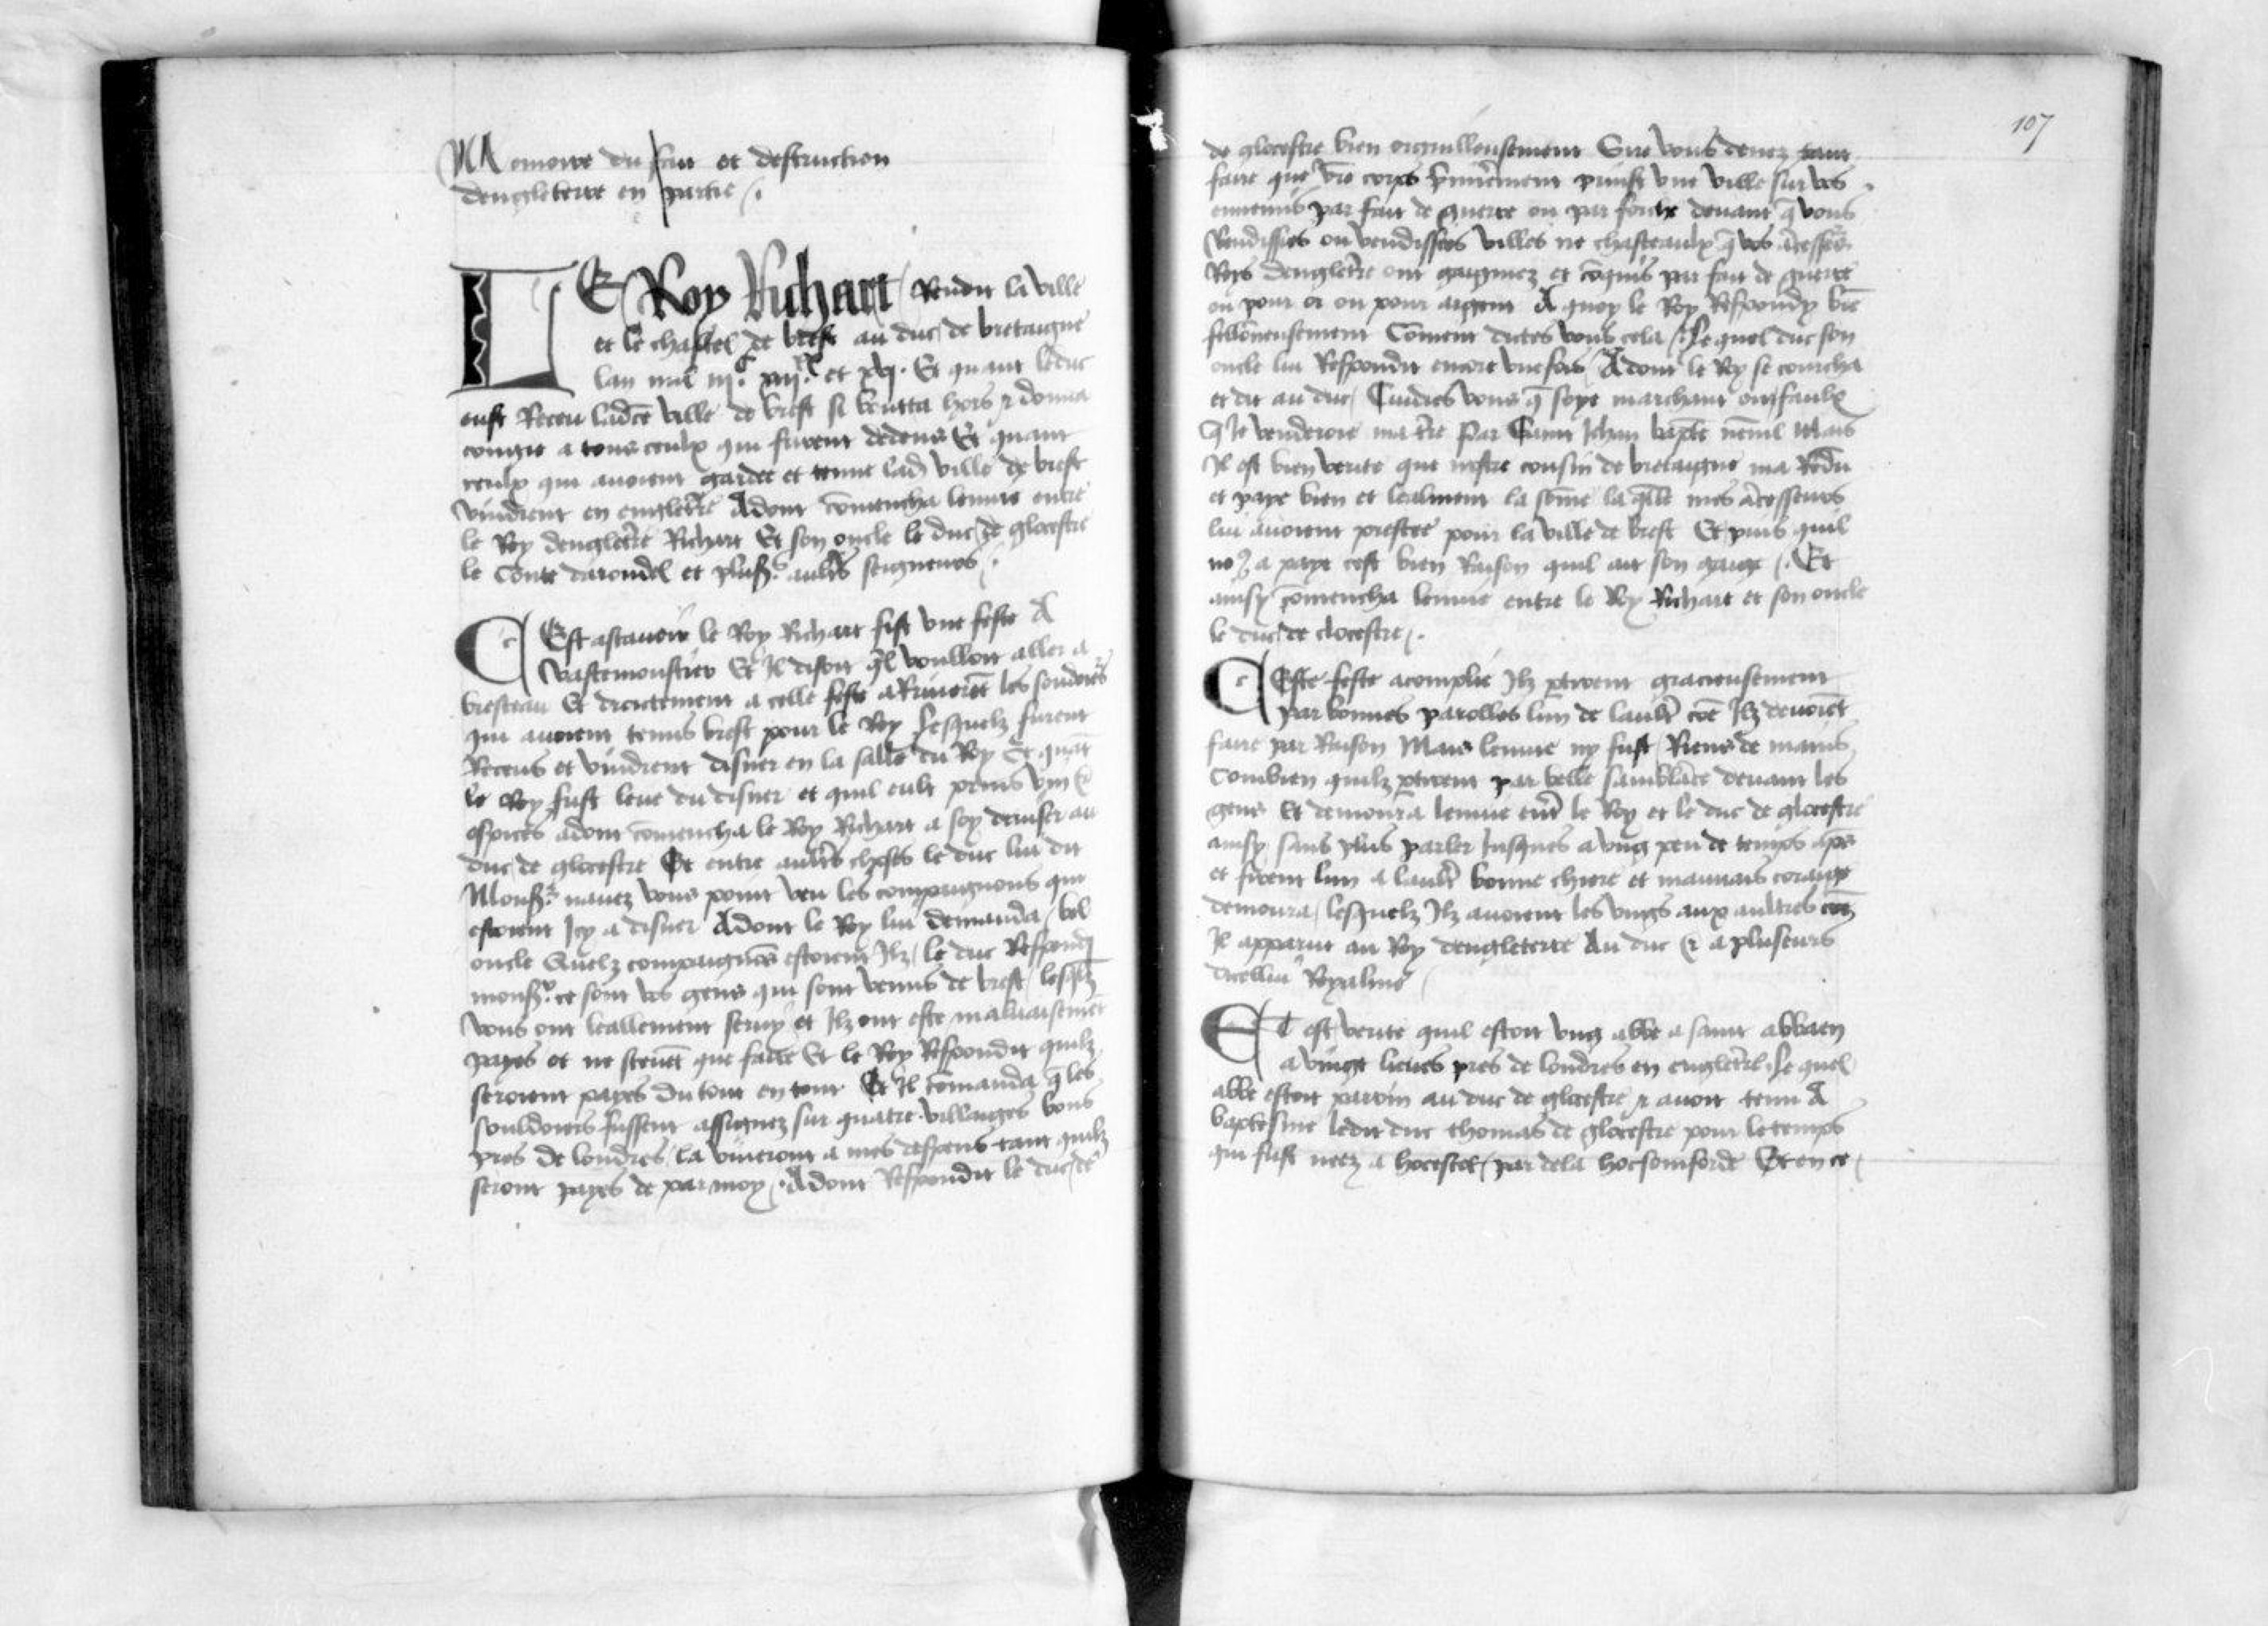 Memoire du fait et destruction
dengleterre en partie /.
LE Roy Richart / Rendit la ville
et le chastel de brest au duc de bretaigne
lan mil iijc iiijxx et xvj. Et quant le duc
eust Receu ladce ville de brest si boutta hors & donna
congie a tous ceulx qui furent dedens Et quant
ceulx qui auoient gardee et tenue lad ville de brest
vindrent en englet're Adont comencha lenuie entre
le Roy denglet're Richart Et son oncle le duc de glocestre
le Conte darondel et plus's ault's seigneurs /.
CEst assauoir le Roy Richart fist vne feste A
Wastemoustier Et Il disoit ql voulloit aller a
bresteau Et droictement a celle feste arriuerēt les souldoiers
qui auoient tenus brest pour le Roy Lesquelz furent
Receus et vindrent disner en la salle du Roy Et quāt
le Roy fust leue du disner et quil eult prins vin &
espices adont comēcha le Roy Richart a soy deuiser au
duc de glocestre Et entre aultres choses le duc lui dit
Monsr nauez vous point veu les compaignons qui
estoient Icy a disner Adont le Roy lui demanda / bel
oncle Quelz compaignōs estoient Ilz / le duc Respondi
monsr ce sont vos gens qui sont venus de brest / lesqlz
vous ont leallement seruy et Ilz ont este maluaisemēt
payes et ne sceuēt que faire Et le Roy Respondit quilz
seroient payes du tout en tout Et Il cōmanda q les
souldoiers fussent assignez sur quatre villaiges bons
pres de londres / la viueront a mes despens tant quilz
seront payes de par moy /. Adont Respondit le duc de
107
de glocestre bien orguilleusement Sire vous deuez tant
faire que vre corps p'mierement prinst vne ville sur vos
ennemis par fait de guerre ou par force deuant q vous
Rendissies ou vendissies villes ne chasteaulx q vos ācesseurs
Roys denglet're ont gaigniez et cōquis par fait de guerre
ou pour or ou pour argent A quoy le Roy Respondy biē
fellōneusement Cōment dictes vous cela / Le quel duc son
oncle lui Respondit encore vne fois Adont le Roy se courcha
et dit au duc / Cuidies vous q soye marchant ou faulx
q Je venderoie ma t're Par Saint Jehan bapte nennil Mais
Il est bien verite que nostre cousin de bretaigne ma Redu
et paye bien et lealment la sōme la qlle mes ācesseurs
lui auoient prestee pour la ville de brest Et puis quil
no9 a paye cest bien Raison quil ait son gaige /. Et
ainsy cōmencha lenuie entre le Roy Richart et son oncle
le duc de clocestre /.
CEste feste acomplie Ilz ptirent gracieusement
par bonnes parolles lun de lault' cōe Ilz deuoiēt
faire par Raison Mais lenuie ny fust Riens de mains
Combien quilz ptirent par belle samblāce deuant les
gens Et demoura lenuie ent' le Roy et le duc de glocestre
ainsy sans plus parler Jusques a vng peu de temps aps
et firent lun a lault' bonne chiere et mauuais coraige
demoura / lesquelz Ilz auoient les vngs aux aultres cōe
Il apparut au Roy dengleterre Au duc & a pluseurs
dicellui Royalme /
Et est verite quil estoit vng abbe a saint abbaen
a vingt lieues pres de londres en englet're. Le quel
abbe estoit parrin au duc de glocestre & auoit tenu A
baptesme ledit duc thomas de glocestre pour le temps
qui fust neez a / par dela Et en ce /